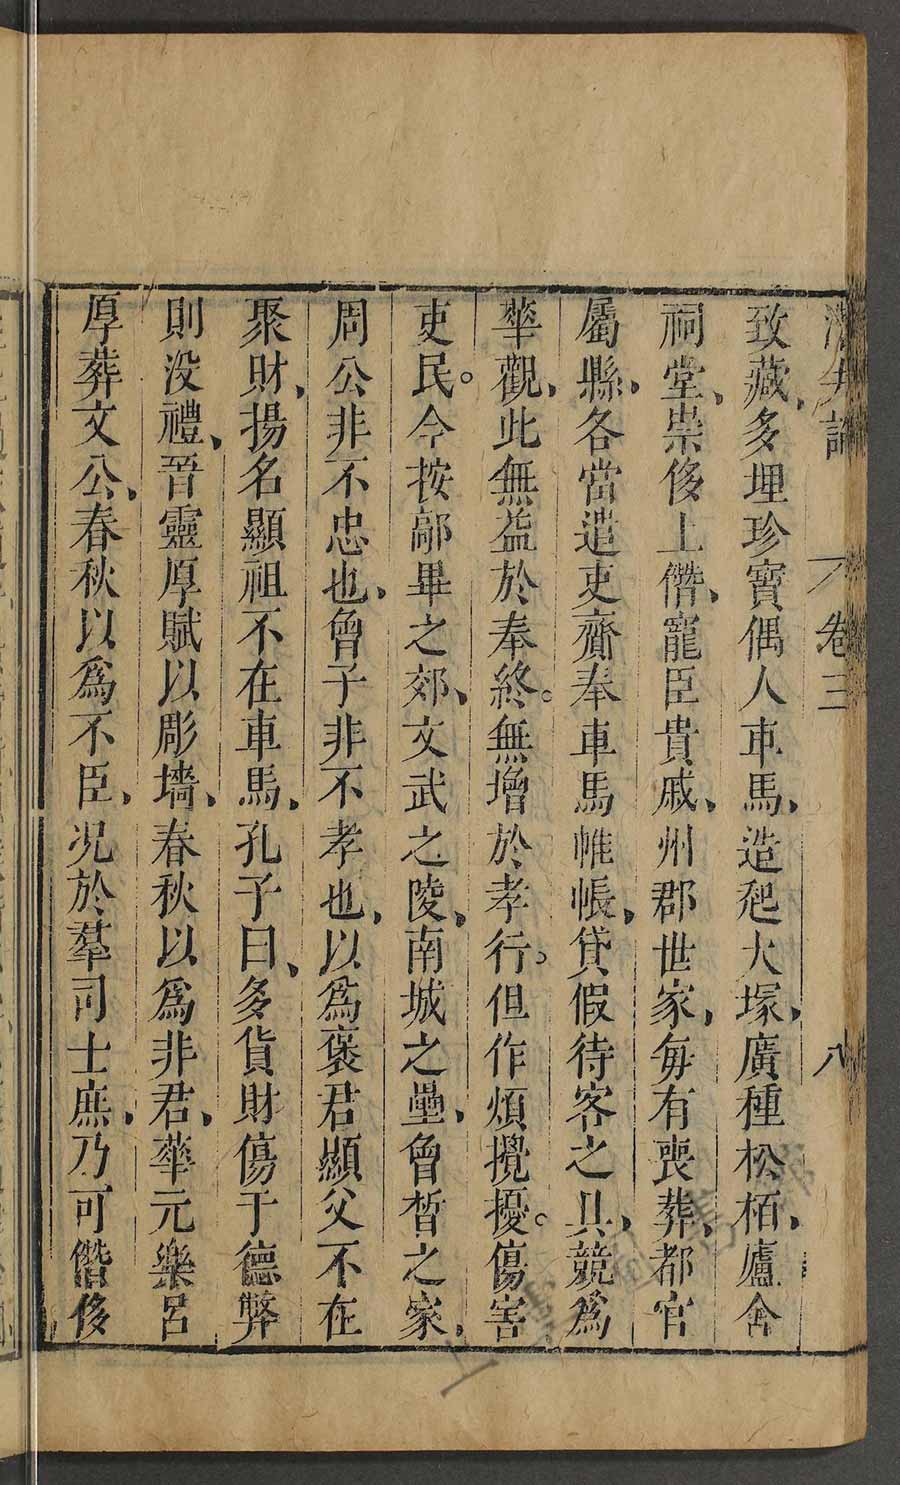 潛夫論 卷三 八
致藏、多埋珍寶偶人車馬、造起大塚、廣種松栢、廬舍
祠堂、崇侈上僭、寵臣貴戚、州郡世家、每有喪葬、都官
屬縣、各當遣吏齎奉車馬帷帳、貸假待客之具、競爲
華觀、此無益於奉終。無增於孝行。但作煩攪擾。傷害
吏民。今按鄗畢之郊、文武之陵、南城之壘、曾晳之冢、
周公非不忠也、曾子非不孝也、以爲褒君顯父不在
聚財、揚名顯祖不在車馬、孔子曰、多貨財傷于德弊
則没禮、晉靈厚賦以彫墻、春秋以爲非君、華元樂呂
厚葬文公、春秋以爲不臣、况於羣司士庶、乃可僭侈